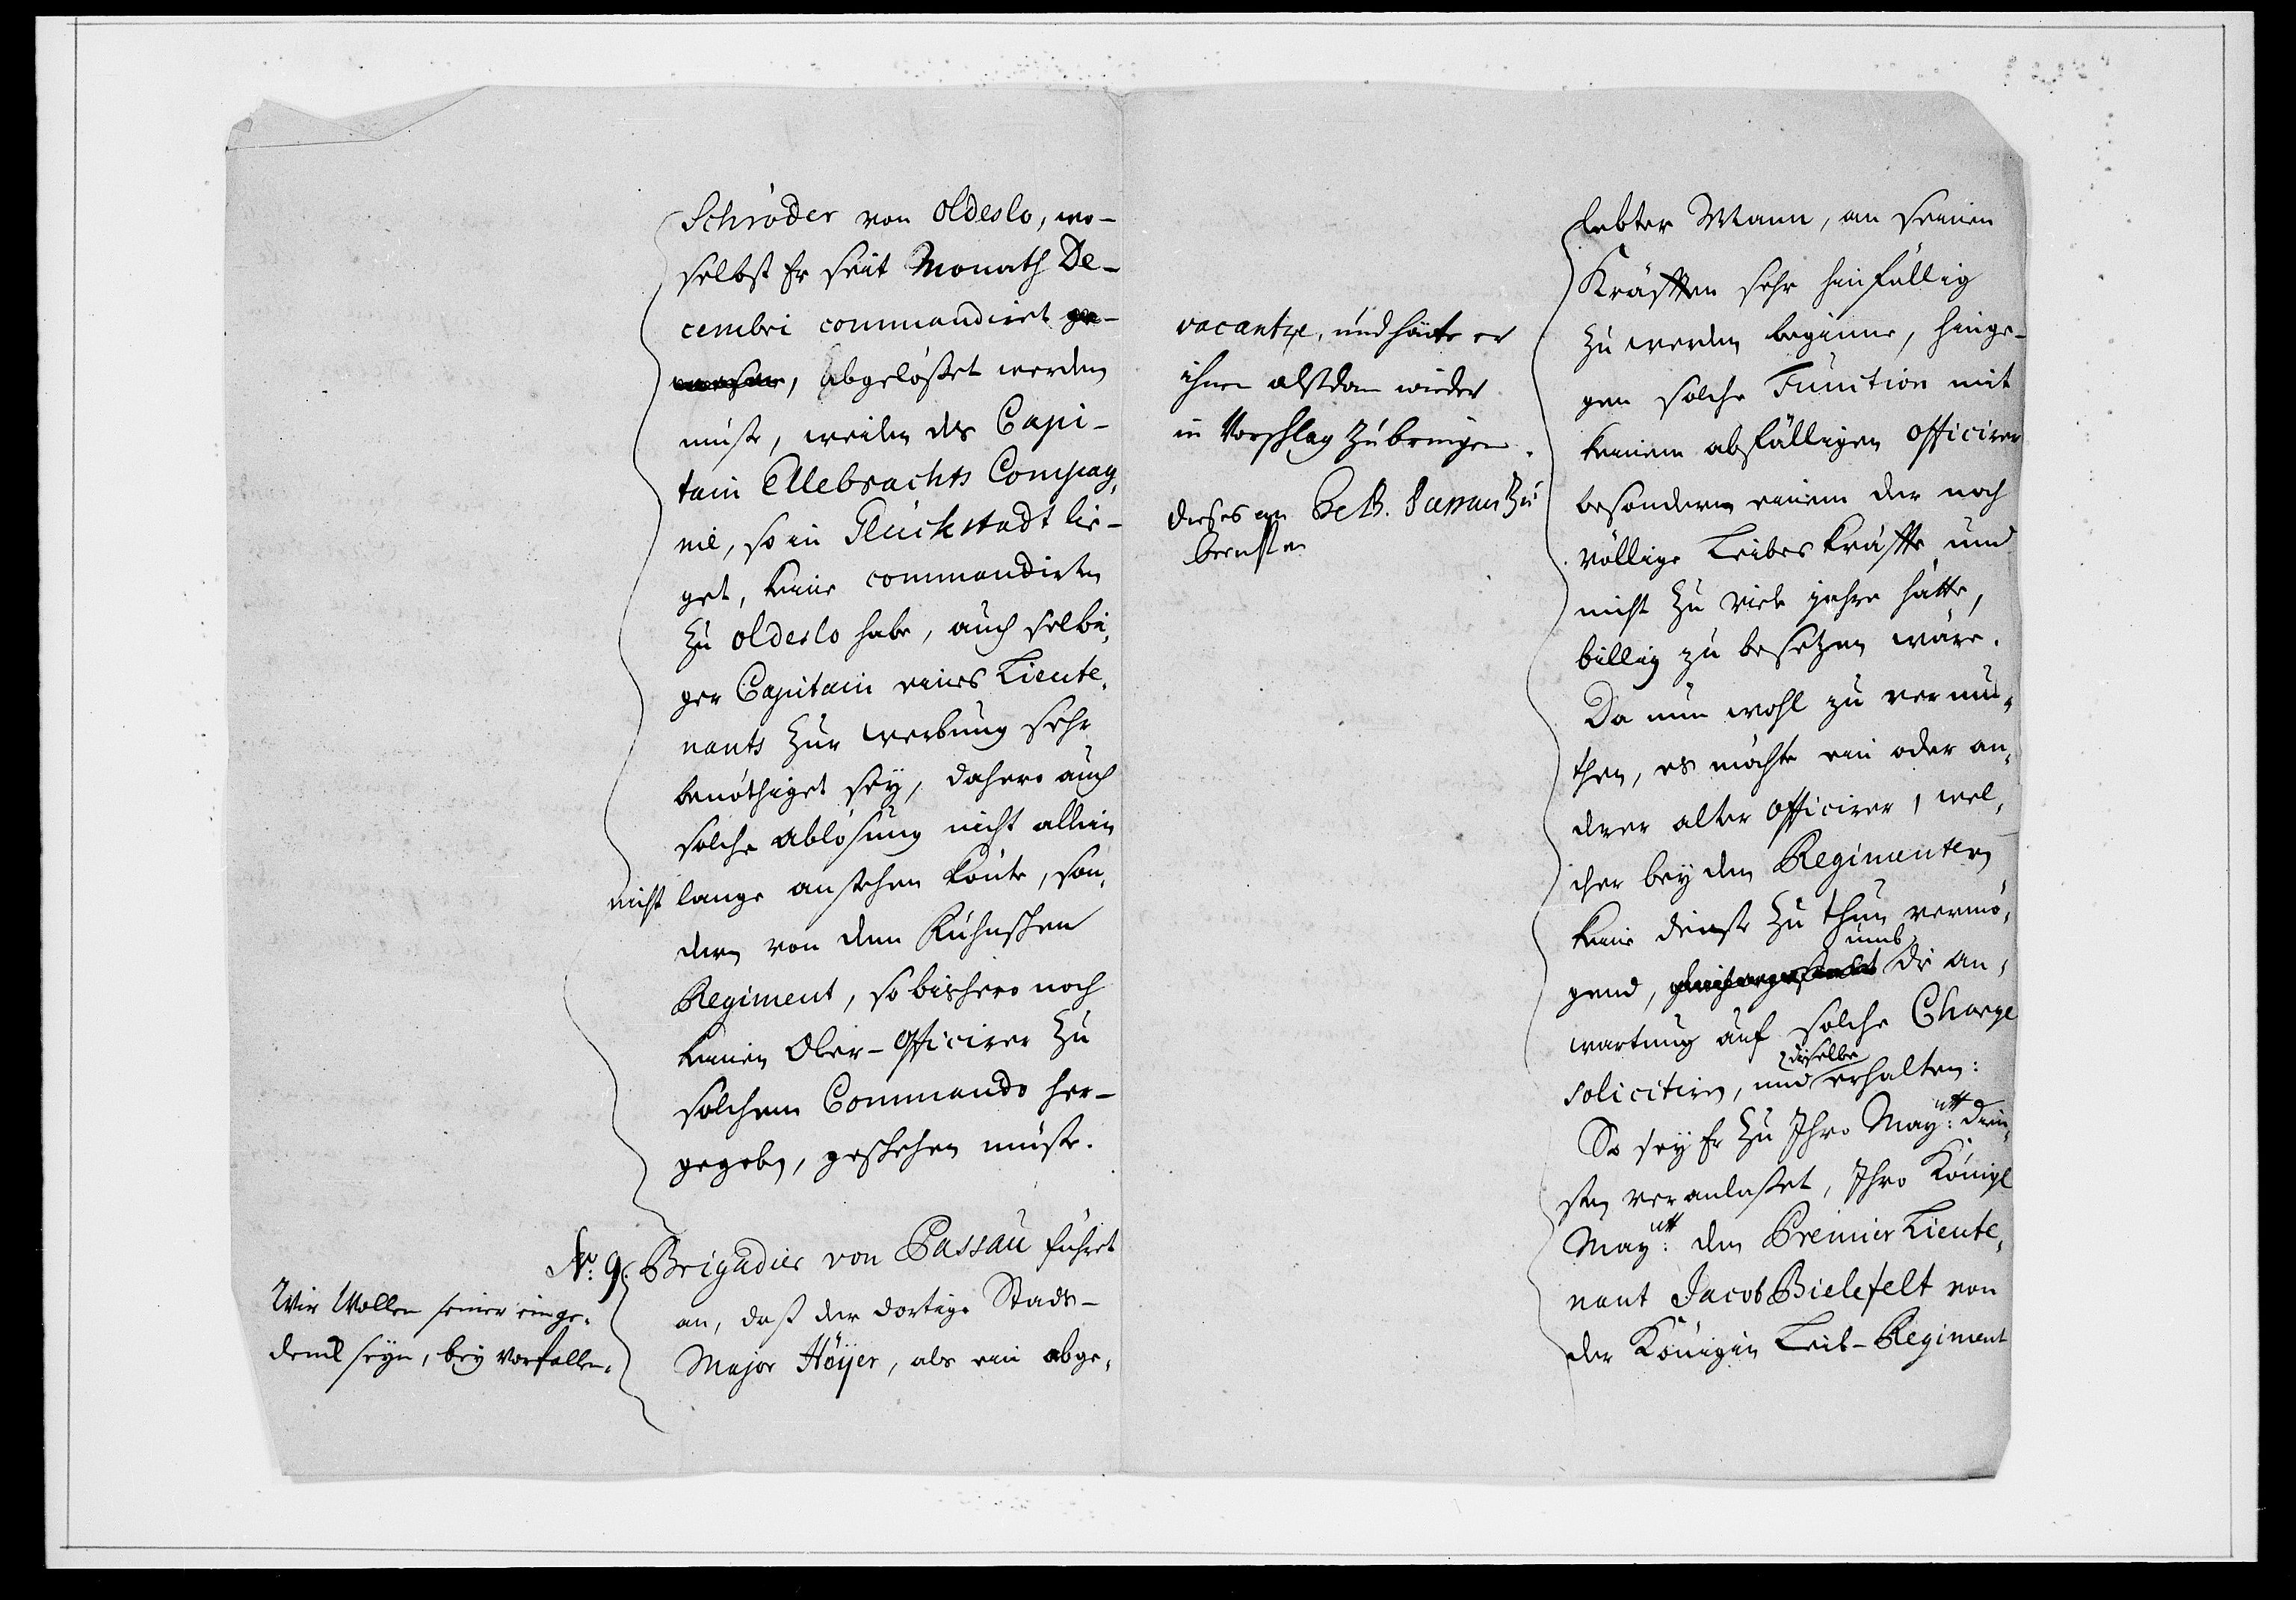 Schröder von Oldeslo, wo-
selbst Er seit Monath De-
cembri commandiret ge-
wesen, abgelöset werden
müste, weilen des Capi-
tain Ellebrachts Compag,
nie, so in Glückstadt lie-
get, keine commandirten
zu Oldeslo habe, auch selbi,
ger Capitain eines Lieute,
nants zur Werbung sehr
benöthiget sey, dahero auch
solche Ablösung nicht allein
nicht lange anstehen könte, son,
dern von dem Kühnschen
Regiment, so bishero noch
keinen Ober-Officirer zu
solchem Commando her-
gegeben, geschehen müste.
No: 9. Brigadier von Passau führet
an, daß der dortige Stads-
Major Höyer, als ein abge,
Wir Wollen seiner einge,
denck seyn, bey Vorfallen,
vacantze, und hätte er
ihnen alsdann wieder
in Vorschlag zu bringen.
dieses an Br. Passau zu
lebter Mann, an seinen
Kräfften sehr hinfällig
zu werden beginne, hinge-
gen solche Function mit
keinem abfälligen Officirer
besondern einem der noch
völlige Leibes kräffte und
nicht zu viele jahre hätte,
billig zu besetzen wäre.
Da nun wohl zu vermu,
then, es möchte ein oder an,
derer alter Officirer, wel,
cher bey den Regimentern
keine dienste zu thun vermö,
gend, umb die An,
wartung auf solche Charge
solicitiren, und dieselbe erhalten:
So sey Er zu Ihro Maytt: dien,
sten veranlasset, Ihro Königl
Maytt: den Premier Lieute,
nant Jacob Bielefelt von
der Königin Leib-Regiment